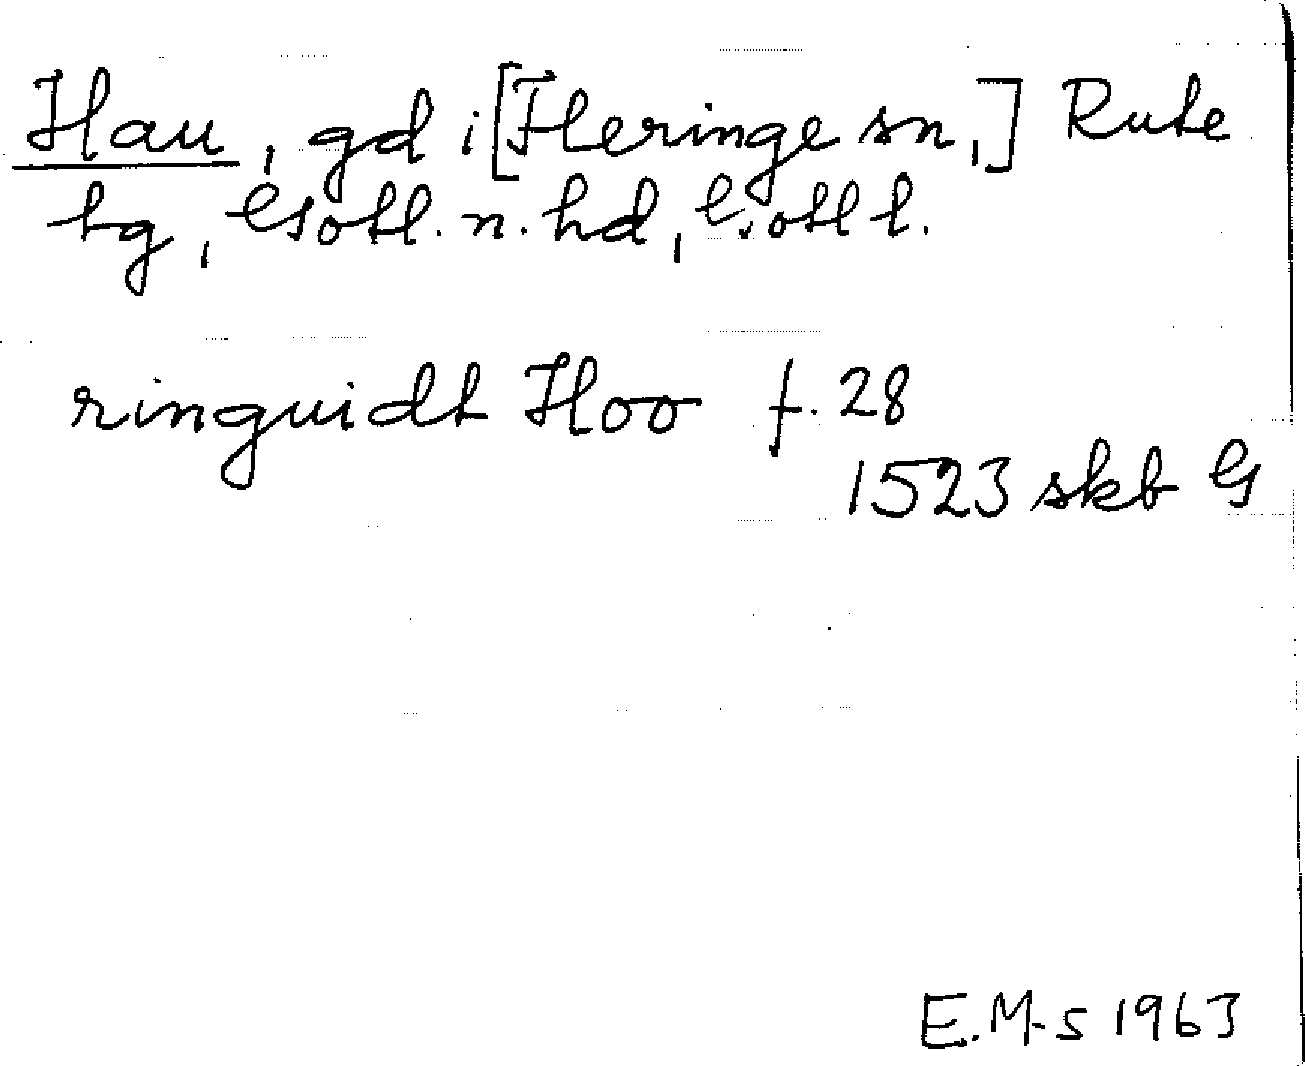 Hau, gd i [Fleringe sn,] Rute
tg, Gotl. n. hd, Gotl l.
ringuidt Hoo f. 28
1523 skb G
E.M-s 1963